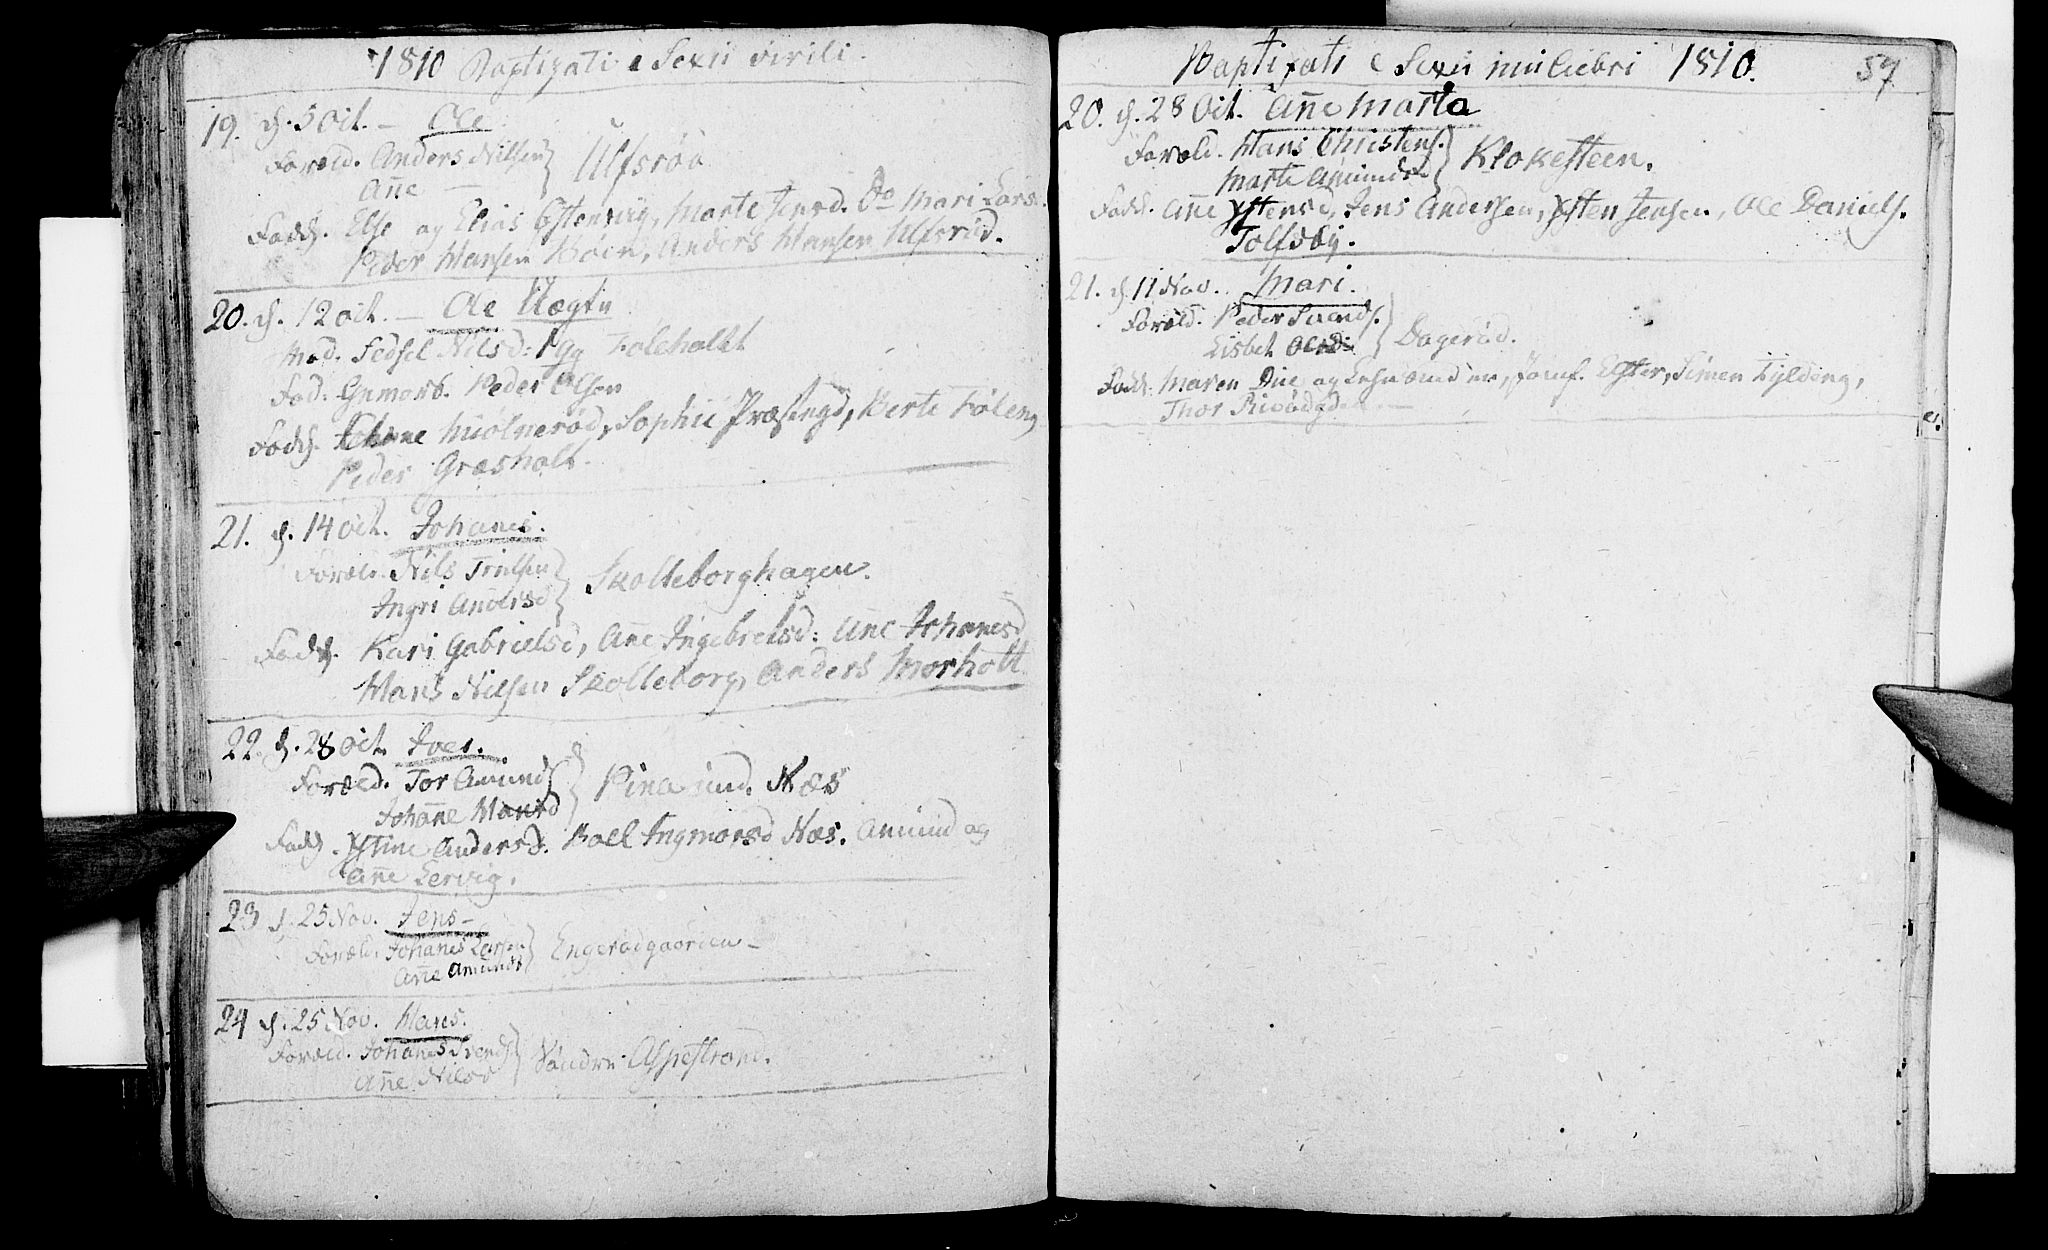 1810 Baptizati e Sexu virili.
19. d. 5 Oct. — Ole
Foræld. Anders Nilsen } Ulfsrød
Añe —
Fadd. Else og Elias Østenvig, Marte Jensd. Do Mari Lars
Peder Hansen Boen, Anders Hansen Ulfsrød.
20. d. 12 oct. — Ole Uægtu
Mod. Sedsel Nilsd: Pge Foleholtt
Fad. Gnmarb. Peder Olsen
Fadd. Miølnerød, Sophie Præstengd, Berte Føleng
Peder Græsholt.
21. d. 14 oct. Johanes.
Foræld. Nils Trulsen } Skolleborghagen.
Ingri Andersd
Fadd. Kari Gabrielsd, Añe Ingebretsd: Añe Johanesd
Hans Nilsen Skolleborg, Anders Morholt
22. d. 28 Oct.
Foræld. Tor Amunds } Næs
Johañe Hansd
Fadd. Xstine Andersd. Boel Ingmorsd Næs. Amund og
Añe Lervig.
23 d. 25 Nov. Jens —
Foræld. Johanes Larsen } Engerødgaorden —
Añe Amunds
24 d. 25 Nov. Hans.
Foræld. Johanes Svends } Søndre Aspestrand.
Añe Nilsd
Baptizati e Sexu muliebri 1810. 57
20. d. 28 Oct. Añe Marta
Foræld. Hans Christens. } Klokesteen.
Marte Amunds
Fadd. Añe Xstensd, Jens Andersen, Xsten Jensen, Ole Daniels.
Tolfsby.
21. d. 11 Nov. Mari.
Foræld. Peder Svends. } Dagerød.
Lisbet Olsd:
Fadd. Maren Due og Lehnsmd en, Jomf. Elster, Simen Fylding,
Thor